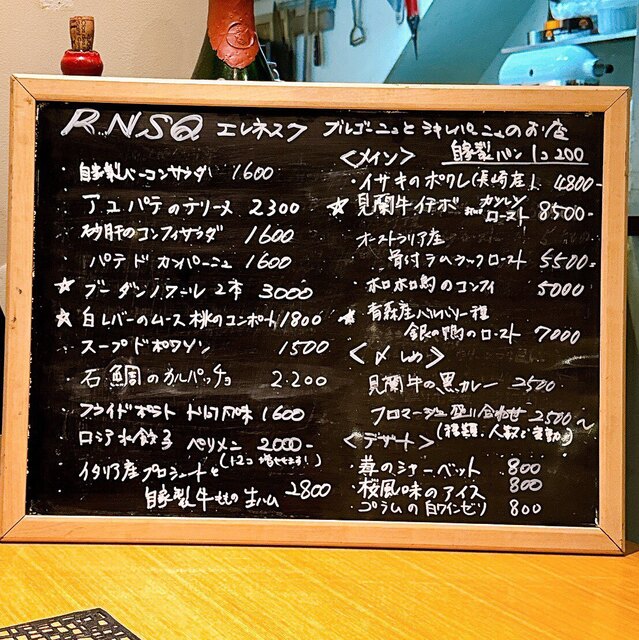 R.N.SQ エレネスク ブルゴーニュとシャンパーニュのお店
・自家製ベーコンサラダ 1600
アユパテのテリーヌ 2300
砂肝のコンフィサラダ 1600
パテドカンパーニュ 1600
☆ブーダンノワール 2本 3000
☆白レバーのムース 桃のコンポート 1800
・スープドポワソン 1500
・石鯛のカルパッチョ 2200
・フライドポテト トリュフ風味 1600
・ロシア水餃子 ペリメニ 2000-
・イタリア産プロシュートと
自家製牛ももの生ハム 2800
<メイン> 自家製パン 1コ 200
・イサキのポワレ(長崎産) 4800-
☆見蘭牛イチボ ロースト 8500-
オーストラリア産
骨付ラムラックロースト 5500-
・ホロホロ鳥のコンフィ 5000
☆青森産バルバリー種
銀の鴨のロースト 7000
<〆 しめ>
見蘭牛の黒カレー 2500
フロマージュ盛り合わせ 2500〜
(種類、人数で変動)
<デザート>
・苺のシャーベット 800
・桜風味のアイス 800
・コラムの白ワインゼリー 800